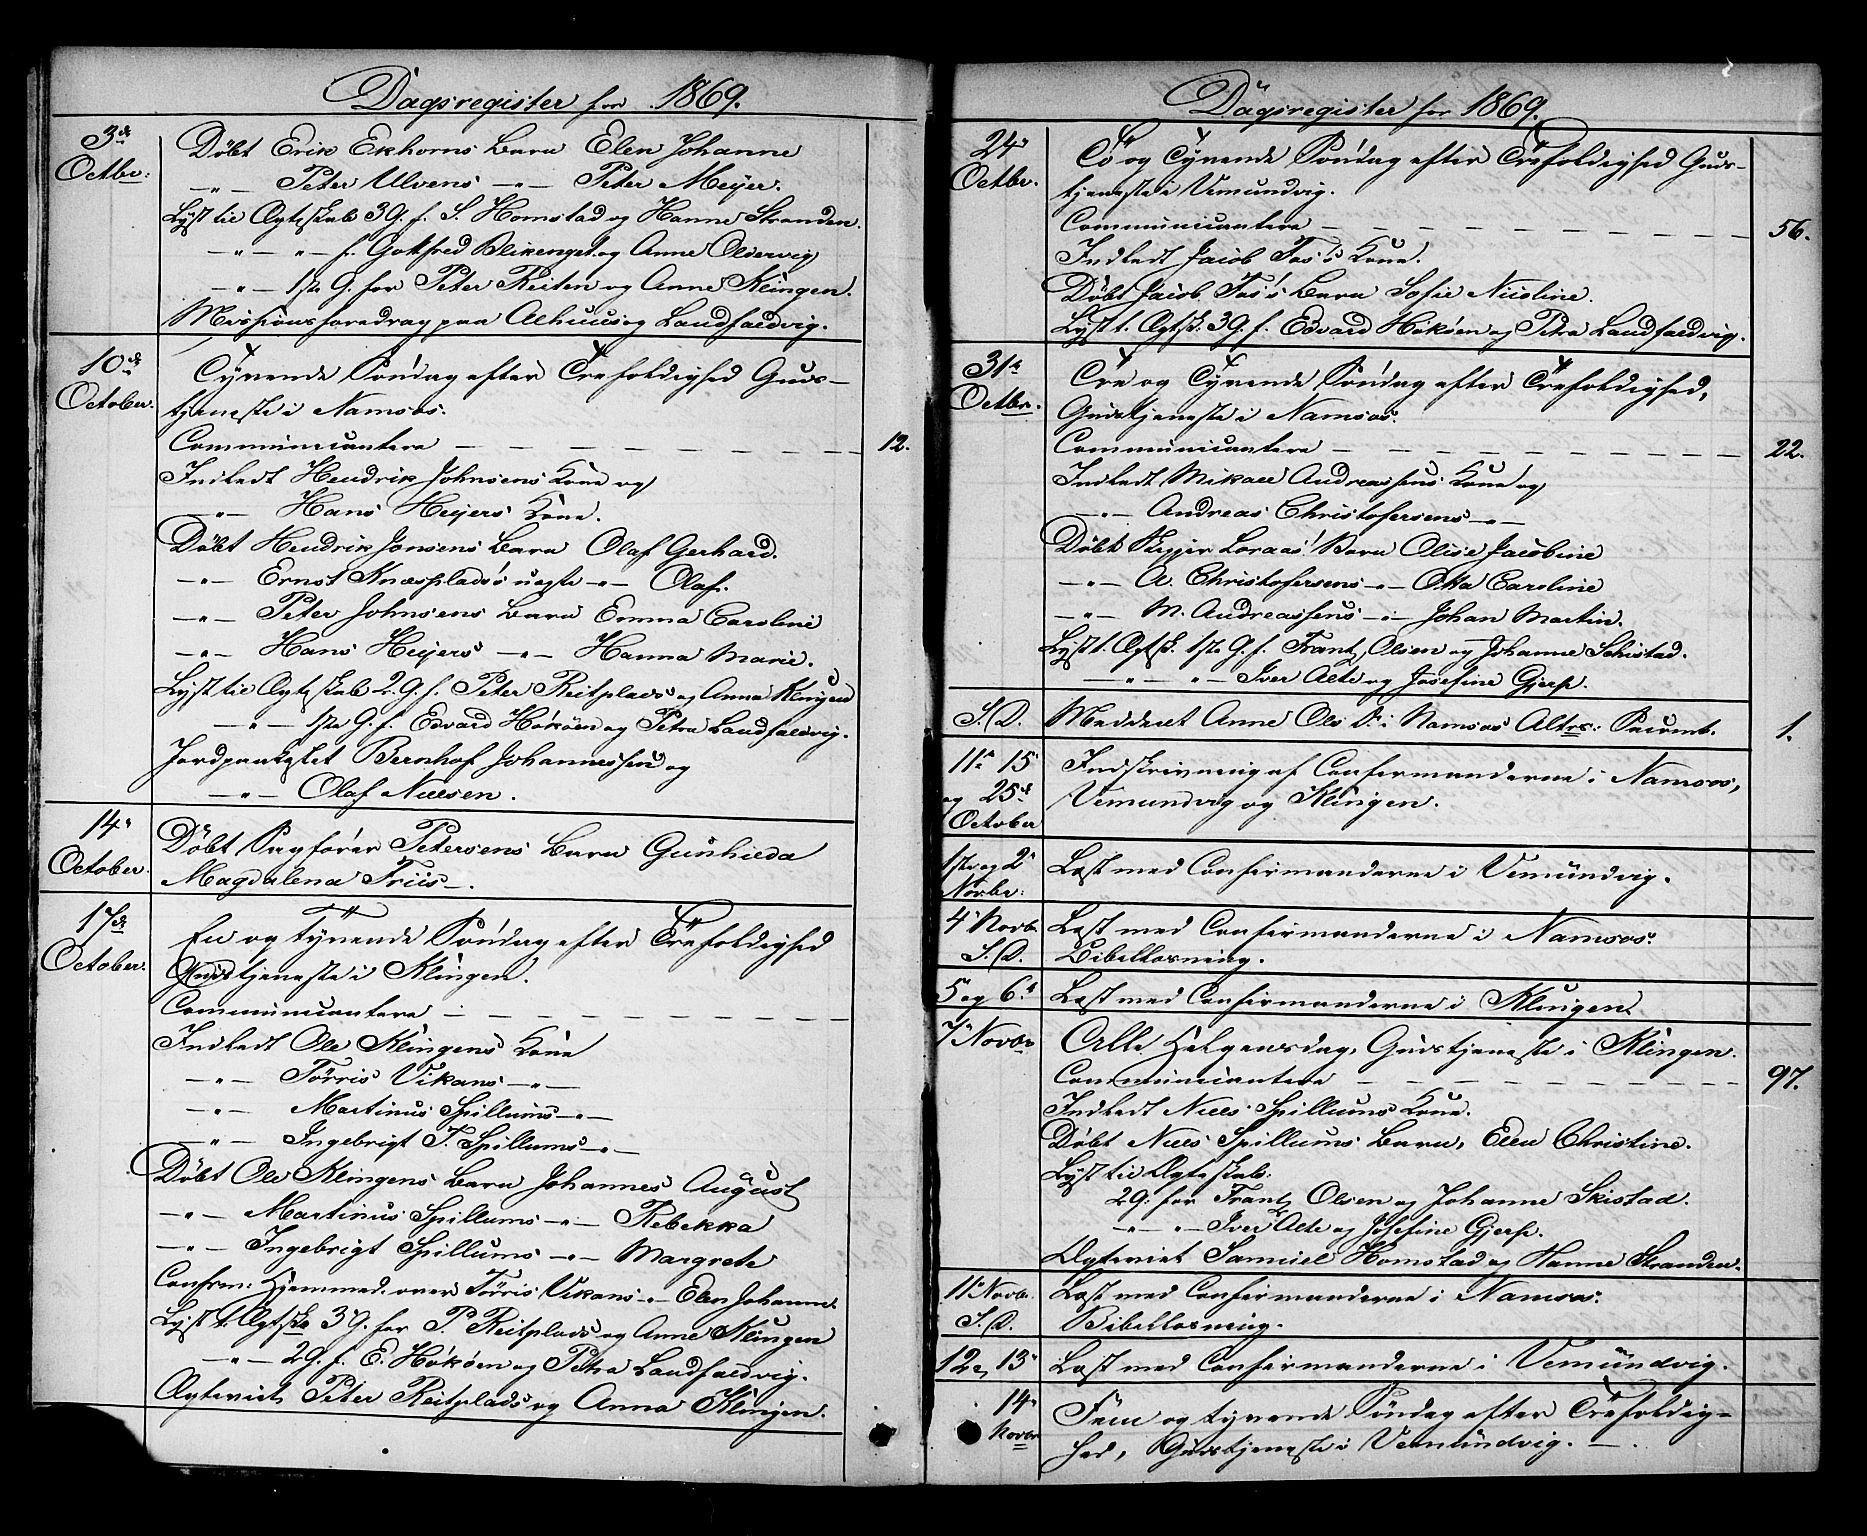 Dagsregister for 1869.
3de Octbr: Döbt Erik Ekhorns Barn Elen Johanne
—"— Peter Ulvens —"— Peter Meyer.
Lyst til Ægteskab 3 G. f. S. Homstad og Hanne Stranden.
—"—"— f. Gottfred Blikenget og Anne Oldervig
—"— 1ste G. for Peter Reiten og Anne Klingen.
Missionsforedrag paa Alhuus og Landfaldvig.
10de October. Tyvende Söndag efter Trefoldighed Guds-
tjeneste i Namsos.
Communicantere — — — 12.
Indledt Hendrik Johnsens Kone og
—"— Hans Heyers Kone.
Döbt Hendrik Jonsens Barn Olaf Gerhard.
—"— Ernst Knæsplads's uægte —"— Olaf.
—"— Peter Johnsens Barn Emma Caroline
—"— Hans Heyers —"— Hanna Marie.
Lyst til Ægteskab 2 G. f. Peter Reitplads og Anna Klingen
—"— 1ste G. f. Edvard Hököen og Petra Landfaldvig.
Jordpaakastet Bernhof Johannessen og
—"— Olaf Nielsen.
14" October. Döbt Sagförer Petersens Barn Gunhilda
Magdalena Friis —.
17de October. En og tyvende Söndag efter Trefoldighed
Gudstjeneste i Klingen.
Communicantere — — —
Indledt Ole Klingens Kone
—"— Törris Vikans —"—
—"— Martinus Spillums —"—
—"— Ingebrigt T. Spillums —"—
Döbt Ole Klingens Barn Johannes August
—"— Martinus Spillums —"— Rebekka
—"— Ingebrigt Spillums —"— Margrete
Confrm: Hjemmed. over Törris Vikans —"— Elen Johanne.
Lyst t. Ægtsk 3 G. for P. Reitplads og Anne Klingen
—"— 2 G. f. E. Hököen og Petra Landfaldvig.
Ægteviet Peter Reitplads og Anna Klingen.
Dagsregister for 1869.
24" Octbr. To og Tyvende Söndag efter Trefoldighed Guds-
tjeneste i Vemundvig.
Communicantere — — — 56.
Indledt Jacob Fos's Kone.
Döbt Jacob Fos's Barn Sofie Nicoline.
Lyst t. Ægtsk. 3 G. f. Edvard Hököen og Petra Landfaldvig.
31te Octbr. Tre og Tyvende Söndag efter Trefoldighed,
Gudstjeneste i Namsos.
Communicantere — — — 22.
Indledt Mikael Andreassens Kone og
—"— Andreas Christofersens —"—
Döbt Loraas' Barn Olise Jacobine
—"— A. Christofersens —"— Otta Caroline
—"— M. Andreassens —"— Johan Martin.
Lyst t. Ægtsk. 1ste G. f. Frantz Olsen og Johanne Schistad.
—"—"— Iver Alte og Josefine Gjerp.
S. D. Meddelet Anne Ols D. i Namsos Altrs: Sacramt. 1.
11" 15" og 25de October Indskrivning af Confirmanderne i Namsos,
Vemundvig og Klingen.
1ste og 2" Novbr: Læst med Confirmanderne i Vemundvig.
4" Novb. Læst med Confirmanderne i Namsos.
S. D. Bibellæsning.
5" og 6." Læst med Confirmanderne i Klingen.
7" Novbr Alle Helgensdag, Gudstjeneste i Klingen.
Communicantere — — — 97.
Indledt Niels Spillums Kone.
Döbt Niels Spillums Barn, Elen Christine.
Lyst til Ægteskab:
2 G. for Frantz Olsen og Johanne Skistad.
—"—"— Iver Alte og Josefine Gjerp.
Ægteviet Samuel Homstad og Hanne Stranden.
11" Novbr. Læst med Confirmanderne i Namsos.
S. D. Bibellæsning.
12 og 13" Læst med Confirmanderne i Vemundvig.
14" Novbr Fem og tyvende Söndag efter Trefoldig-
hed, Gudstjeneste i Vemundvig. —.